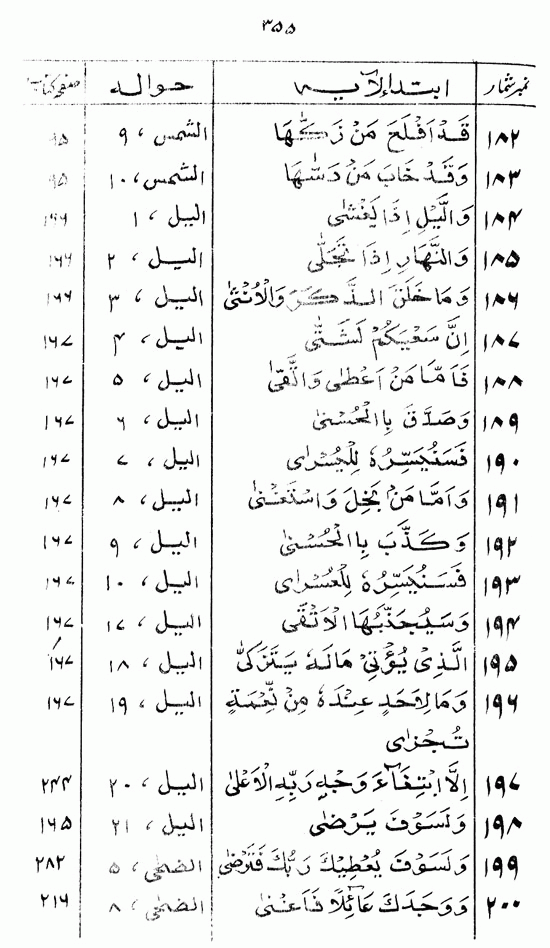 ۳۵۵
نمبر شمار ابتداء الآیہ حوالہ صفحہ کتاب
۱۸۲ قَدْ اَفْلَحَ مَنْ زَكّٰهَا الشمس، ۹ ۹۵
۱۸۳ وَقَدْ خَابَ مَنْ دَسّٰهَا الشمس، ۱۰ ۹۵
۱۸۴ وَالَّيْلِ اِذَا يَغْشٰى اليل، ۱ ۱۶۶
۱۸۵ وَالنَّهَارِ اِذَا تَجَلّٰى اليل، ۲ ۱۶۶
۱۸۶ وَمَا خَلَقَ الذَّكَرَ وَالْاُنْثٰى اليل، ۳ ۱۶۶
۱۸۷ اِنَّ سَعْيَكُمْ لَشَتّٰى اليل، ۴ ۱۶۷
۱۸۸ فَاَمَّا مَنْ اَعْطٰى وَاتَّقٰى اليل، ۵ ۱۶۷
۱۸۹ وَصَدَّقَ بِالْحُسْنٰى اليل، ۶ ۱۶۷
۱۹۰ فَسَنُيَسِّرُهٗ لِلْيُسْرٰى اليل، ۷ ۱۶۷
۱۹۱ وَاَمَّا مَنْ بَخِلَ وَاسْتَغْنٰى اليل، ۸ ۱۶۷
۱۹۲ وَكَذَّبَ بِالْحُسْنٰى اليل، ۹ ۱۶۷
۱۹۳ فَسَنُيَسِّرُهٗ لِلْعُسْرٰى اليل، ۱۰ ۱۶۷
۱۹۴ وَسَيُجَنَّبُهَا الْاَتْقَى اليل، ۱۷ ۱۶۷
۱۹۵ الَّذِىْ يُؤْتِىْ مَالَهٗ يَتَزَكّٰى اليل، ۱۸ ۱۶۷
۱۹۶ وَمَا لِاَحَدٍ عِنْدَهٗ مِنْ نِّعْمَةٍ اليل، ۱۹ ۱۶۷
تُجْزٰى
۱۹۷ اِلَّا ابْتِغَآءَ وَجْهِ رَبِّهِ الْاَعْلٰى اليل، ۲۰ ۲۴۴
۱۹۸ وَلَسَوْفَ يَرْضٰى اليل، ۲۱ ۱۶۵
۱۹۹ وَلَسَوْفَ يُعْطِيْكَ رَبُّكَ فَتَرْضٰى الضحٰى، ۵ ۲۸۲
۲۰۰ وَوَجَدَكَ عَآئِلًا فَاَغْنٰى الضحٰى، ۸ ۲۱۶